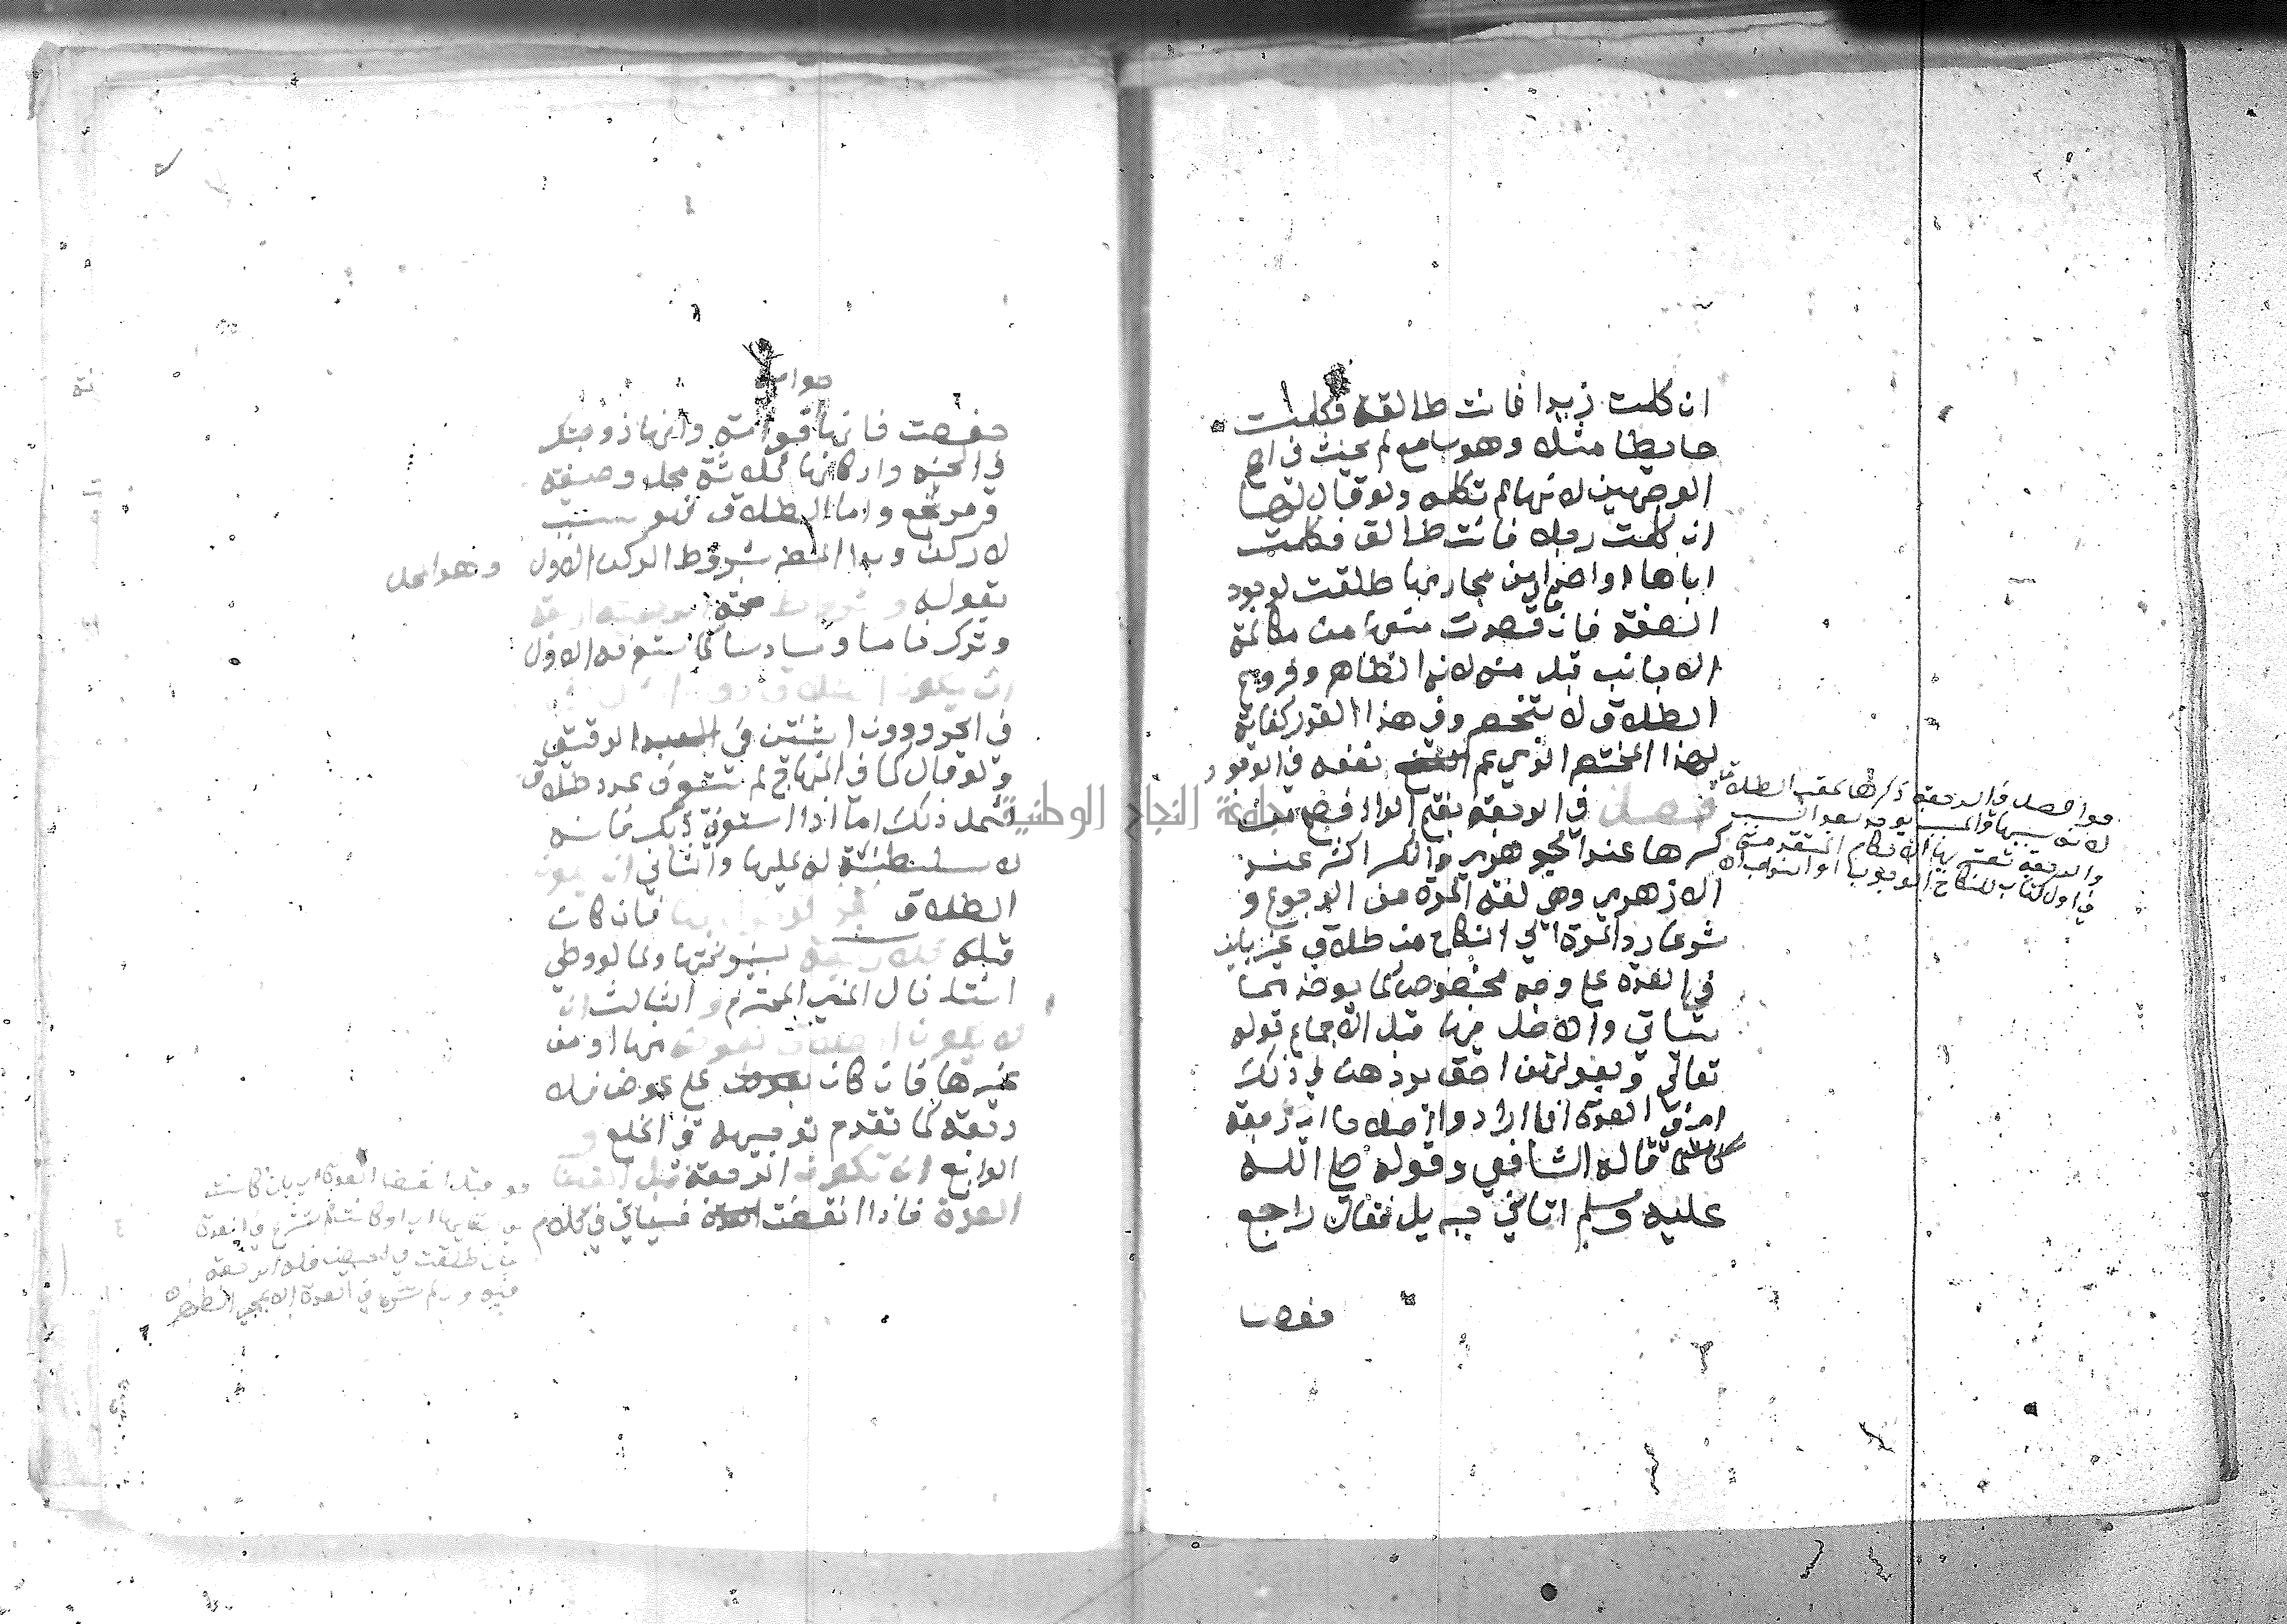 ان كلمت زيدا فانت طالقة فكلمت
حايطا مثلا وهو سامع لم يحنث في اصح
الوجهين لانها لم تكلمه ولو قال لها
ان كلمت رجلا فانت طالق فكلمت
اباها او احدا من محارمها طلقت لوجود
الصفة فان قصدت منعها من مكالمة
الاجانب قبل منه لانه الظاهر وفروع
الطلاق لا تنحصر وفي هذا القدر كفاية
لهذا المختصر الذي عم نفعه في الوجود
فصل في الرجعة بفتح الراء افصح من
كسرها عند الجوهري والكسر اكثر عند
الازهري وهي لغة المرة من الرجوع و
شرعا رد المرة الى النكاح من طلاق غير باين
في العدة على وجه مخصوص كما يوخذ مما
سياتي والاصل فيها قبل الاجماع قوله
تعالى وبعولتهن احق بردهن في ذلك
اي في العدة ان ارادوا اصلاحا اي رجعة
كما قاله الشافعي وقوله صلى الله
عليه وسلم اتاني جبريل فقال راجع
حفصة
قوله فصل في الرجعة ذكرها عقب الطلاق
لانه سببها والمسبب يوجد بعد السبب
والرجعة تعتريها الاحكام المتقدمة
في اول كتاب النكاح الوجوب او الندب الخ
جوامه
حفصت فانها قوامة وانها زوجتك
في الجنة واركانها ثلاثة محل وصيغة
ومرتجع واما الطلاق فهو سبب
لا ركن وبدا المصنف بشروط الركن الاول وهو المحل
بقوله وشروط صحة الرجعة اربعة
وترك خامسا وسادسا كما ستعرفه الاول
ان يكون الطلاق دون الثلاث
في الحر ودون اثنتين في الرقيق
ولو قال كما في المنهاج لم يستوف عدد طلاق
لشمل ذلك اما اذا استوفى ذلك فانه
لا سلطنة له عليها والثاني ان يكون
الطلاق بعد الدخول بها فان كان
قبله فلا رجعة لبينونتها وكالوطي
استدخال المني المحترم والثالث ان
لا يكون الطلاق بعوض منها او من
غيرها فان كان على عوض فلا
رجعة كما تقدم توجيهه في الخلع و
الرابع ان تكون الرجعة قبل انقضا
العدة فاذا انقضت فسياتي في كلامه
قوله قبل انقضا العدة اي بان كانت
بان طلقت في الحيض فله الرجعة
فيه ولم تشرع في العدة الا بمجي الطهر